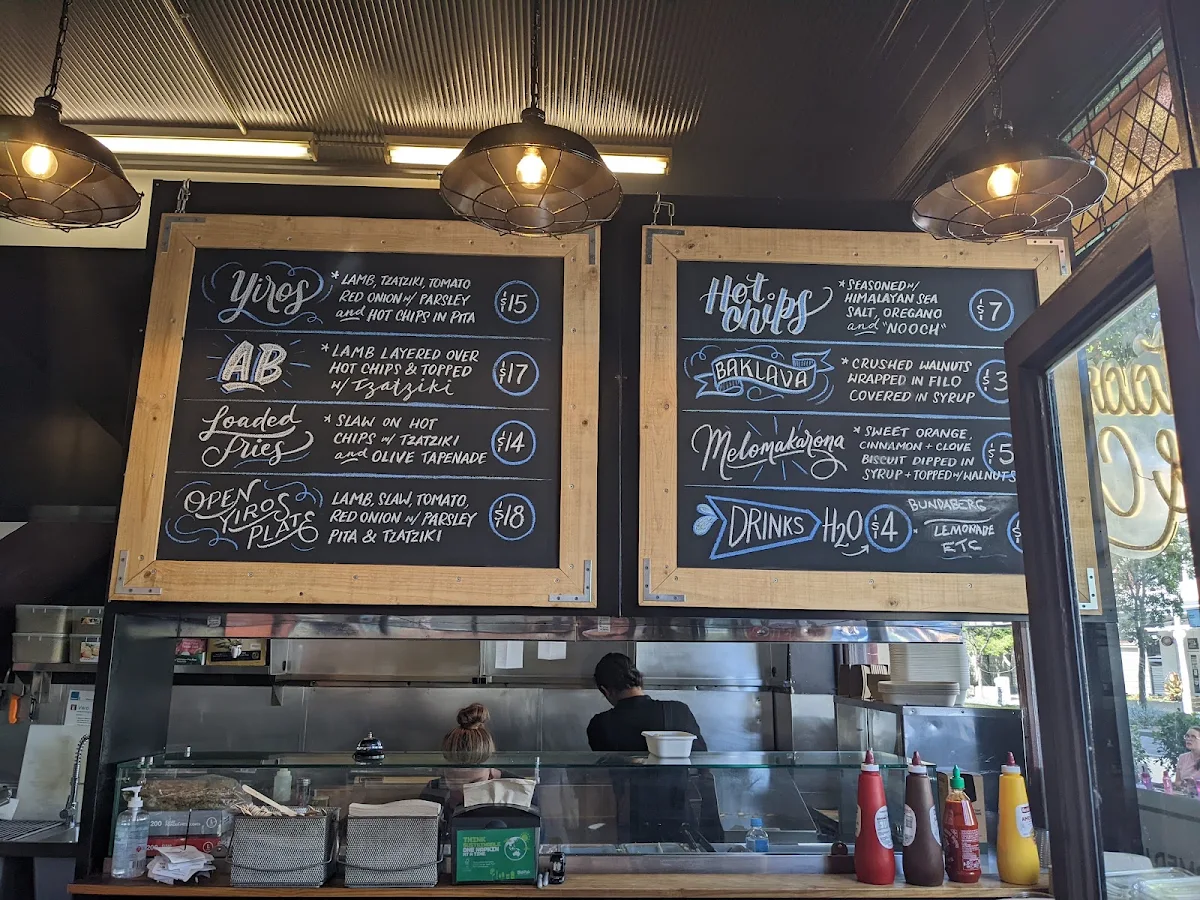 Yiros
* LAMB, TZATZIKI, TOMATO
RED ONION w/ PARSLEY
and HOT CHIPS IN PITA
$15
AB
* LAMB LAYERED OVER
HOT CHIPS & TOPPED
w/ Tzatziki
$17
Loaded
Fries
* SLAW ON HOT
CHIPS w/ TZATZIKI
and OLIVE TAPENADE
$14
OPEN
YIROS
PLATE
LAMB, SLAW, TOMATO,
RED ONION w/ PARSLEY
PITA & TZATZIKI
$18
Hot
Chips
* SEASONED w/
HIMALAYAN SEA
SALT, OREGANO
and "NOOCH"
$7
BAKLAVA
* CRUSHED WALNUTS
WRAPPED IN FILO
COVERED IN SYRUP
$3
Melomakarona
* SWEET ORANGE,
CINNAMON + CLOVE
BISCUIT DIPPED IN
SYRUP + TOPPED w/ WALNUTS
$5
DRINKS
H2O
$4
BUNDABERG
LEMONADE
ETC
THINK
SUSTAINABLE
ONE NAPKIN
AT A TIME
200
200